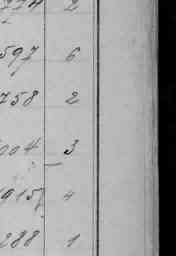 774 2
597 6
758 2
004 3
915 4
288 1